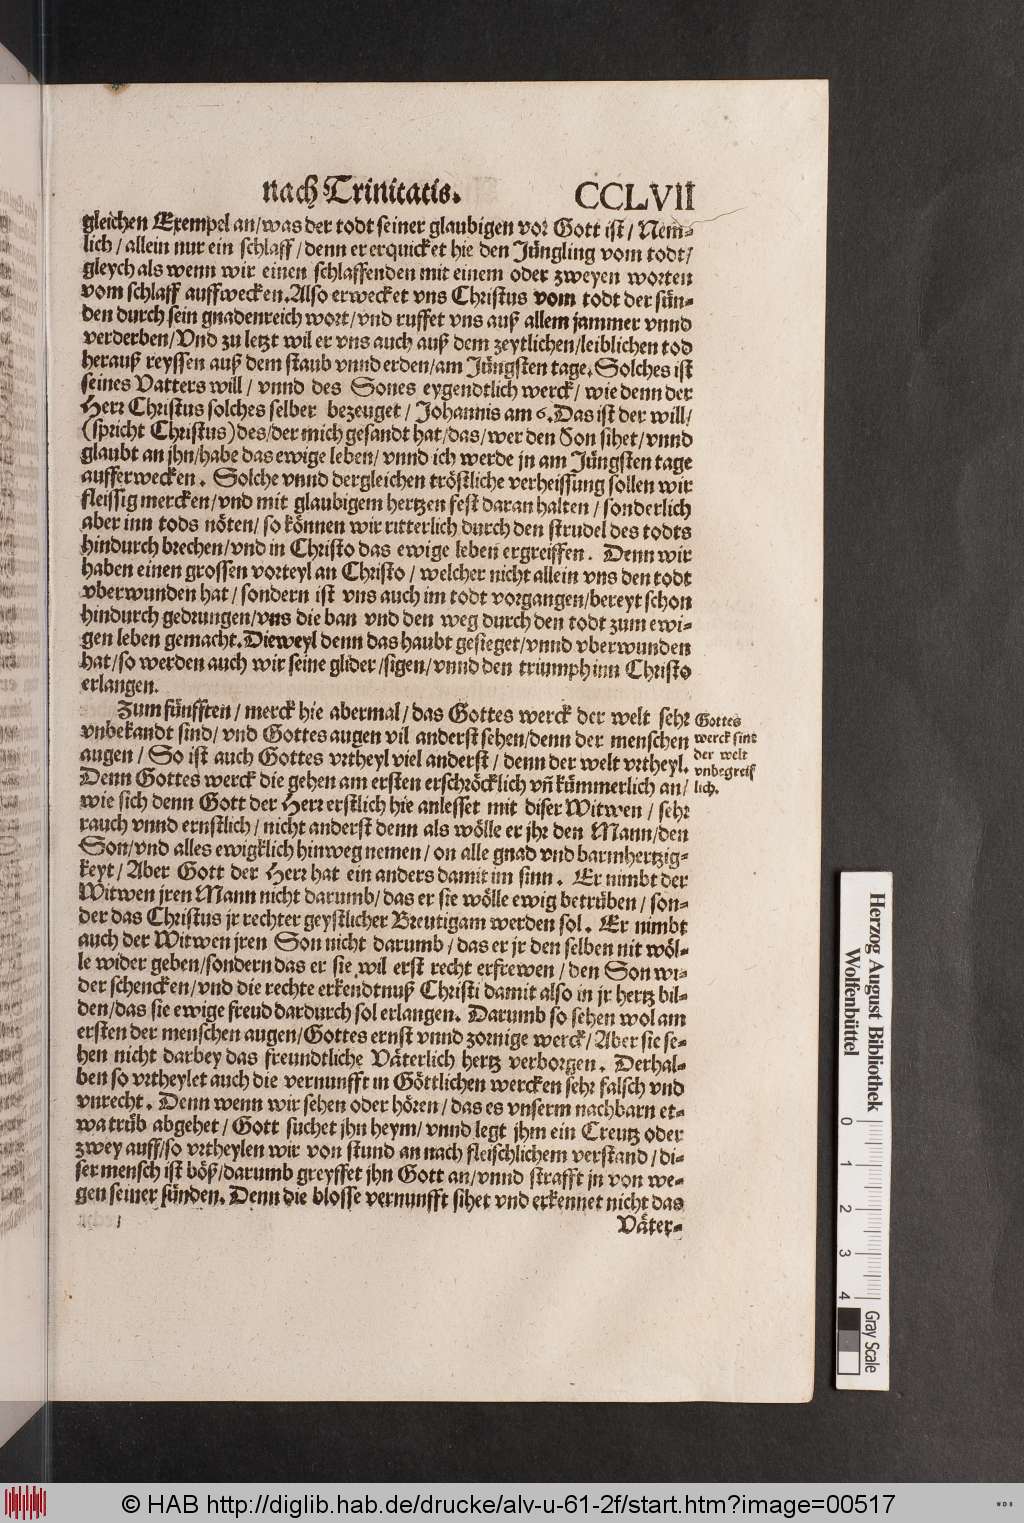 nach Trinitatis. CCLVII
gleichen Exempel an/was der todt seiner glaubigen vor Gott ist/ Nem-
lich/ allein nur ein schlaff/ denn er erquicket hie den Jüngling vom todt/
gleych als wenn wir einen schlaffenden mit einem oder zweyen worten
vom schlaff auffwecken. Also erwecket vns Christus vom todt der sün-
den durch sein gnadenreich wort/ vnd ruffet vns auß allem jammer vnnd
verderben/ Vnd zu letzt wil er vns auch auß dem zeytlichen/leiblichen tod
herauß reyssen auß dem staub vnnd erden/am Jüngsten tage. Solches ist
seines Vatters will/ vnnd des Sones eygendtlich werck/ wie denn der
Herr Christus solches selber bezeuget/ Johannis am 6. Das ist der will/
(spricht Christus) des/der mich gesandt hat/das/wer den Son sihet/vnnd
glaubt an jhn/habe das ewige leben/ vnnd ich werde jn am Jüngsten tage
aufferwecken. Solche vnnd dergleichen tröstliche verheissung sollen wir
fleissig mercken/vnd mit glaubigem hertzen fest daran halten/ sonderlich
aber inn tods nöten/ so können wir ritterlich durch den strudel des todts
hindurch brechen/vnd in Christo das ewige leben ergreiffen. Denn wir
haben einen grossen vorteyl an Christo/ welcher nicht allein vns den todt
vberwunden hat/ sondern ist vns auch im todt vorgangen/bereyt schon
hindurch gedrungen/vns die ban vnd den weg durch den todt zum ewi-
gen leben gemacht. Dieweyl denn das haubt gesieget/vnnd vberwunden
hat/so werden auch wir seine glider/sigen/vnnd den triumph inn Christo
erlangen.
Zum fünfften/ merck hie abermal/ das Gottes werck der welt sehr
vnbekandt sind/ vnd Gottes augen vil anderst sehen/denn der menschen
augen/ So ist auch Gottes vrtheyl viel anderst/ denn der welt vrtheyl.
Denn Gottes werck die gehen am ersten erschröcklich vñ kümmerlich an/
wie sich denn Gott der Herr erstlich hie anlesset mit diser Witwen/ sehr
rauch vnnd ernstlich/ nicht anderst denn als wölle er jhr den Mann/den
Son/vnd alles ewigklich hinweg nemen/ on alle gnad vnd barmhertzig-
keyt/ Aber Gott der Herr hat ein anders damit im sinn. Er nimbt der
Witwen jren Mann nicht darumb/ das er sie wölle ewig betrüben/ son-
der das Christus jr rechter geystlicher Breutigam werden sol. Er nimbt
auch der Witwen jren Son nicht darumb/ das er jr den selben nit wöl-
le wider geben/sondern das er sie wil erst recht erfrewen/ den Son wi-
der schencken/vnd die rechte erkendtnuß Christi damit also in jr hertz bil-
den/das sie ewige freud dardurch sol erlangen. Darumb so sehen wol am
ersten der menschen augen/Gottes ernst vnnd zornige werck/ Aber sie se-
hen nicht darbey das freundtliche Väterlich hertz verborgen. Derhal-
ben so vrtheylet auch die vernunfft in Göttlichen wercken sehr falsch vnd
vnrecht. Denn wenn wir sehen oder hören/ das es vnserm nachbarn et-
wa trüb abgehet/ Gott suchet jhn heym/ vnnd legt jhm ein Creutz oder
zwey auff/so vrtheylen wir von stund an nach fleischlichem verstand/ di-
ser mensch ist böß/darumb greyffet jhn Gott an/vnnd strafft jn von we-
gen seiner sünden. Denn die blosse vernunfft sihet vnd erkennet nicht das
Väter-
Gottes
werck sint
der welt
vnbegreif
lich.
Herzog August Bibliothek
Wolfenbüttel
0 1 2 3 4
Gray Scale
© HAB http://diglib.hab.de/drucke/alv-u-61-2f/start.htm?image=00517
WDB